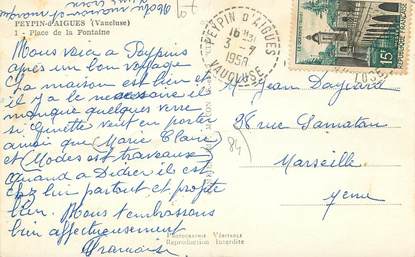 PEYPIN-d'AIGUES (Vaucluse)
1 - Place de la Fontaine
Nous voici à Peypins
après un bon voyage
La maison est bien et
il y a le nécessaire il
manque quelques verre
si Ginette veut en porter
ainsi que (Marie Claire
et Modes et travaux)
quand à Didier il est
chez lui partout et profite
bien. Nous t'embrassons
bien affectueusement
Françoise
PEYPIN D'AIGUES
16H
3-7
1958
VAUCLUSE
15F
Jean
36 rue Samatan
Marseille
7eme
84
PHOTOGRAPHIE VÉRITABLE
Reproduction Interdite